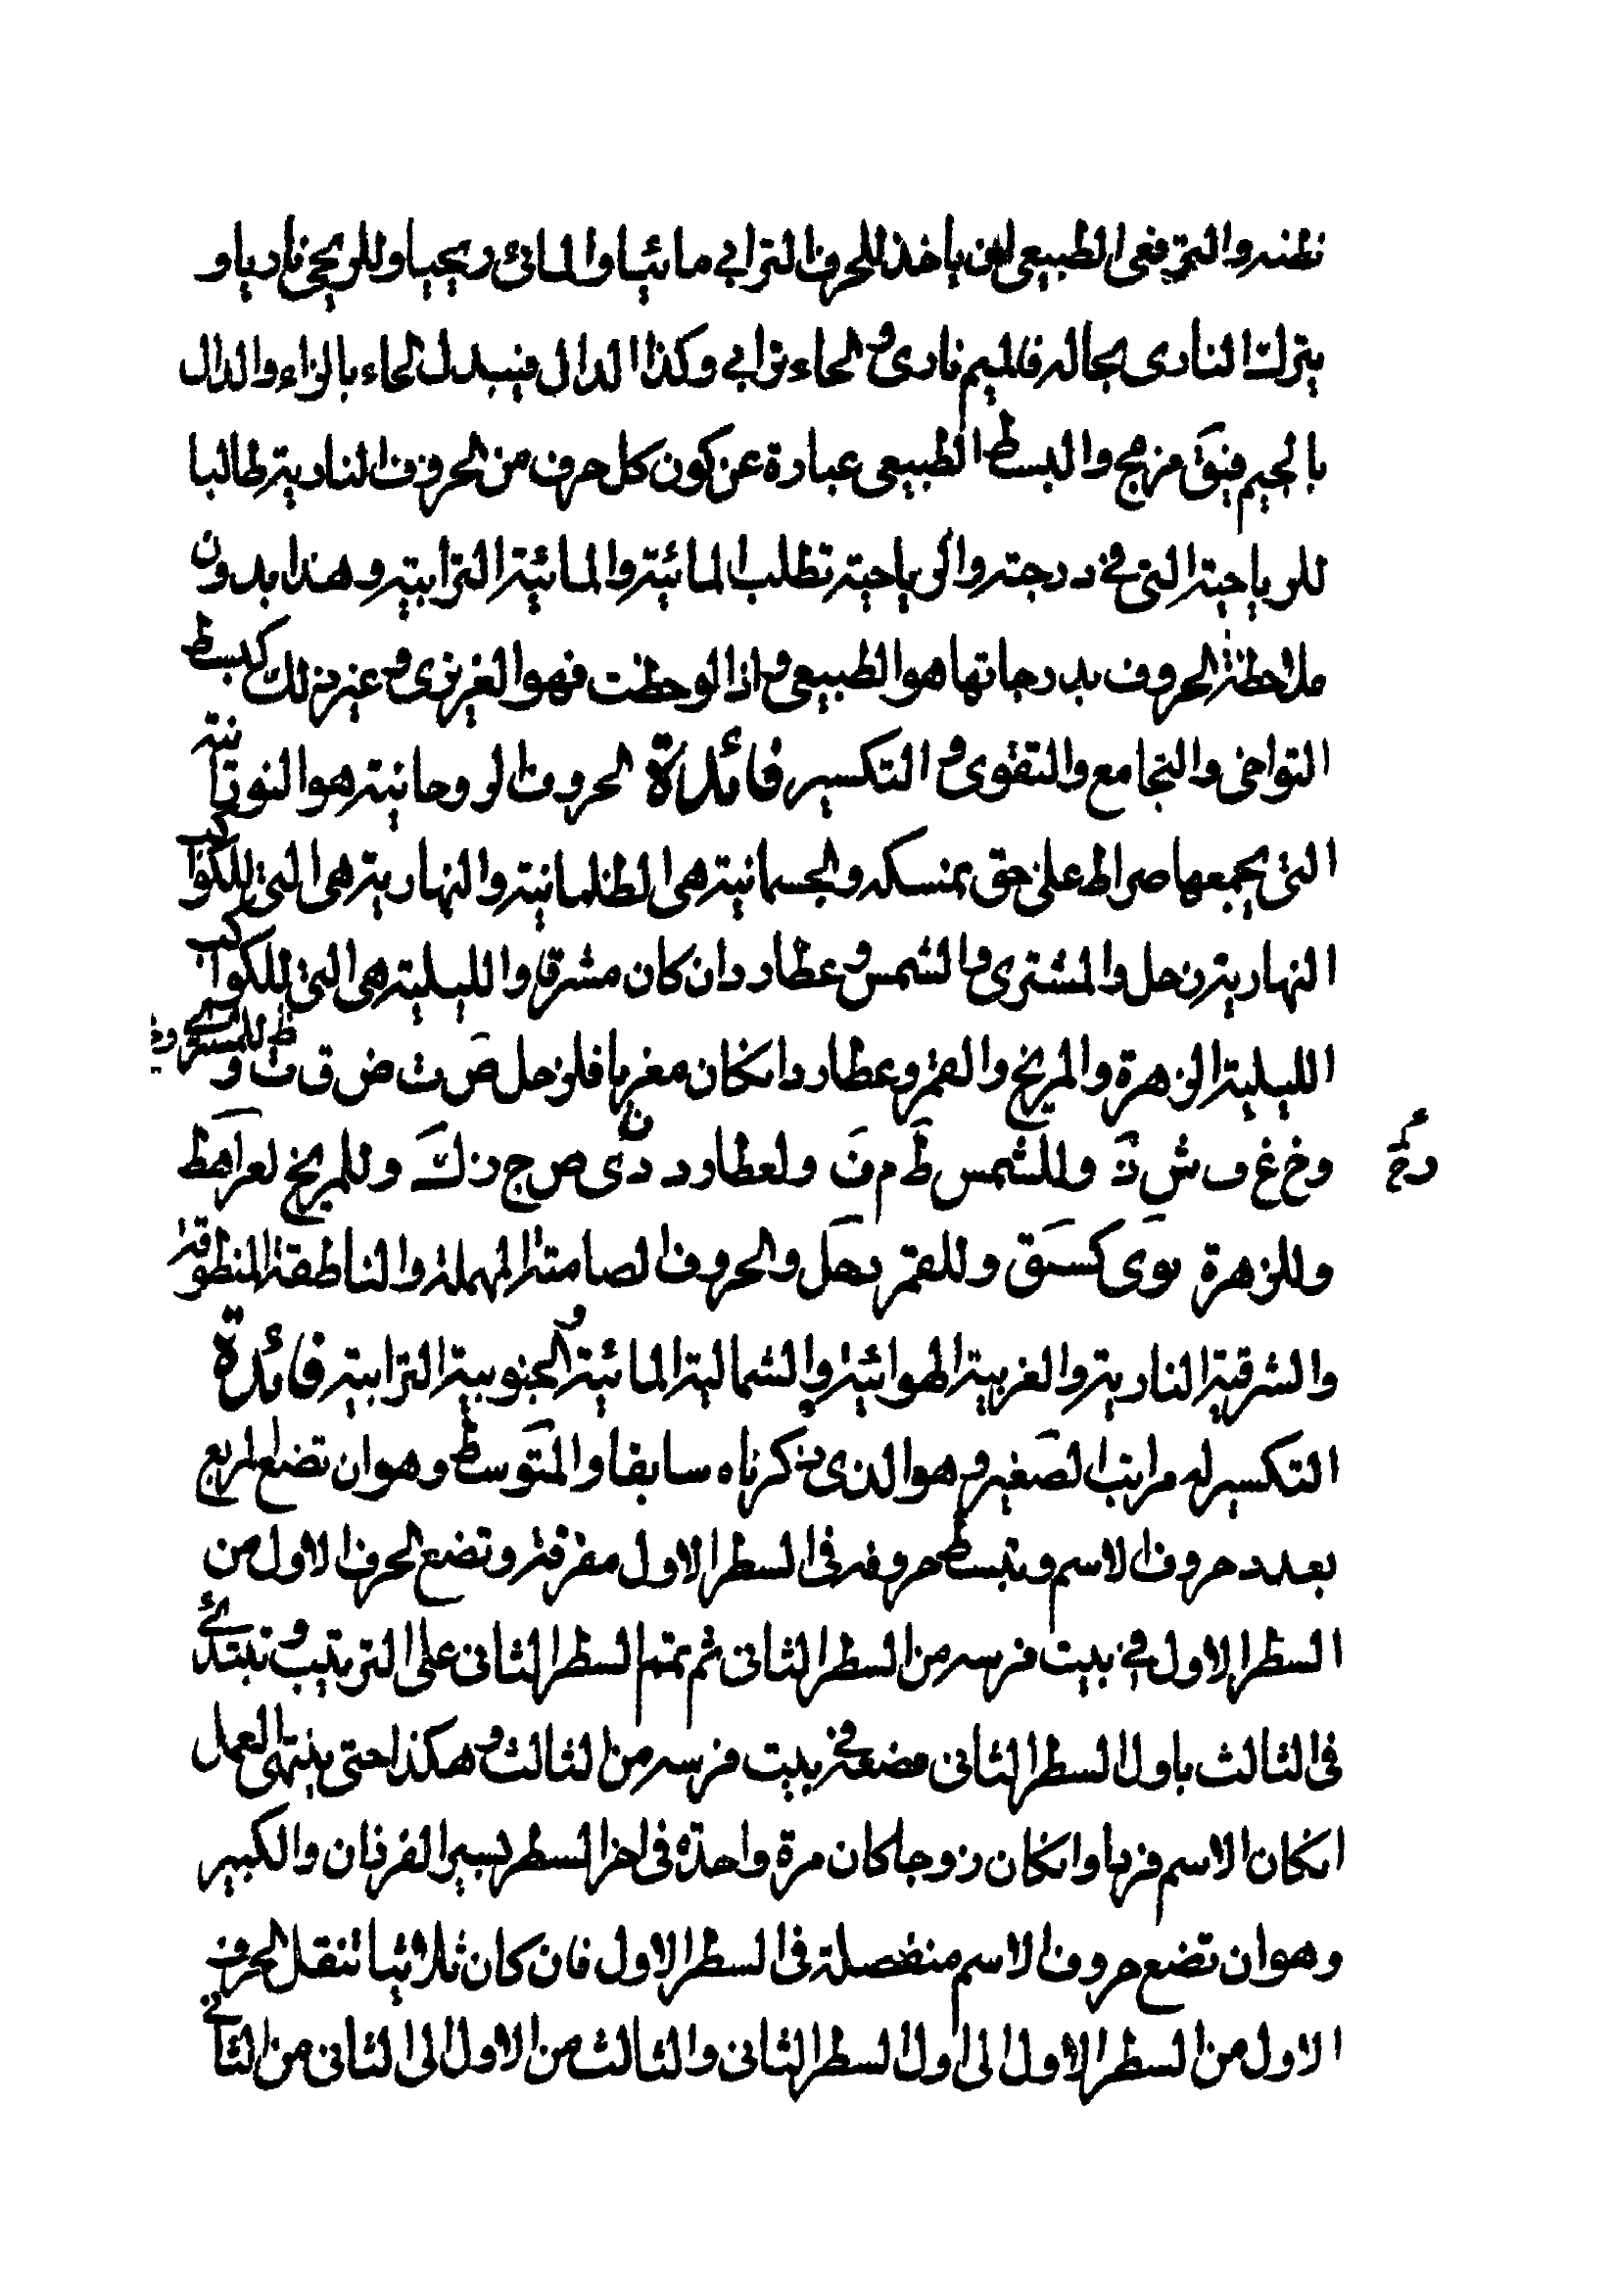 نظنه والترفعى الطبيعى ان ياخذ للحرف الترابي مائيا وللمائى ريحيا وللريحى ناريا و
يترك النارى بحاله فالميم نارى والحاء ترابي وكذا الدال فيبدل الحاء بالزاء والدال
بالجيم فيبقى مزمج والبسط الطبيعى عبارة عن كون كل حرف من الحروف النارية طالبا
للرياحية التى في درجته والرياحية تطلب المائية والمائية الترابية وهذا بدون
ملاحظة الحروف بدرجاتها هو الطبيعى واذا لوحظت فهو الغريزى وغير ذلك كبسط
التواخى والتجامع والتقوى والتكسير فائدة الحروف الروحانية هو النورانية
التى يجمعها صراط على حق نمسكه والجسمانية هى الظلمانية والنهارية هى التى للكواكب
النهارية زحل والمشترى والشمس وعطارد ان كان مشرقا والليلية هى التى للكواكب
الليلية الزهرة والمريخ والقمر وعطارد انكان مغربا فلزحل ص ث ض ق ت و ط للمشترى
وخ غ ف ش ذ وللشمس ظ م ن ولعطارد د ن ى ص ج ز ك وللمريخ
وللزهرة وللقمر والحروف الصامتة المهملة والناطقة المنطوقة
والشرقية النارية والغربية الهوائية والشمالية المائية والجنوبية الترابية فائدة
التكسير له مراتب الصغير وهو الذى ذكرناه سابقا والمتوسط وهو ان تضع المربع
بعدد حروف الاسم وتبسط حروفه في السطر الاول مفرقة وتضع الحرف الاول من
السطر الاول في بيت فرسه من السطر الثانى ثم تمتم السطر الثانى على الترتيب وتبتدئ
فى الثالث باول السطر الثانى فضعه في بيت فرسه من الثالث وهكذا حتى ينتهى العمل
انكان الاسم فردا وانكان زوجا كان مرة واحدة فى اخر السطر لسير الفرزان والكبير
وهو ان تضع حروف الاسم منفصلة فى السطر الاول فان كان ثلاثيا تنقل الحرف
الاول من السطر الاول الى اول السطر الثانى والثالث من الاول الى الثانى من الثانى